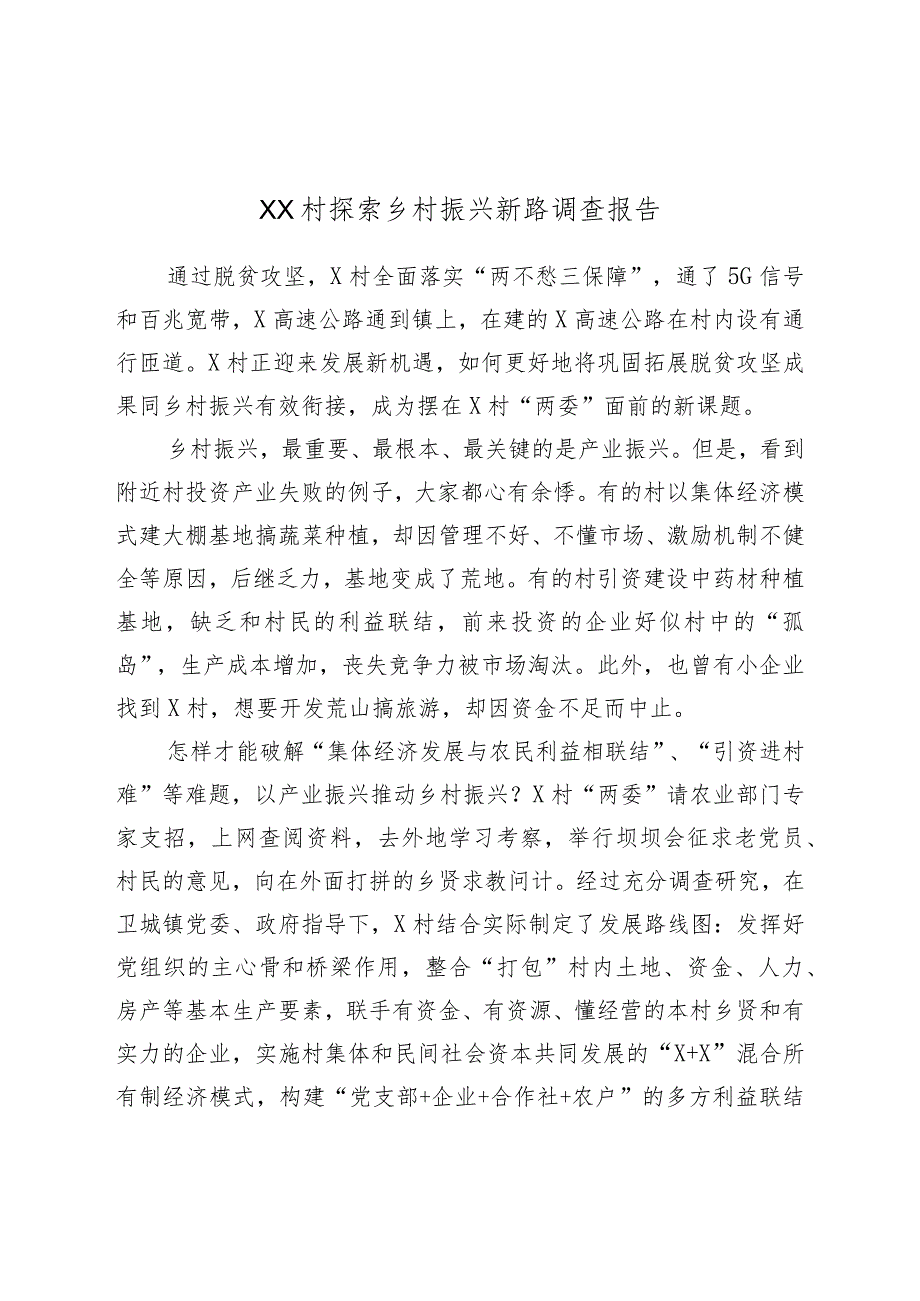 XX村探索乡村振兴新路调查报告
通过脱贫攻坚，X村全面落实“两不愁三保障”，通了5G信号
和百兆宽带，X高速公路通到镇上，在建的X高速公路在村内设有通
行匝道。X村正迎来发展新机遇，如何更好地将巩固拓展脱贫攻坚成
果同乡村振兴有效衔接，成为摆在X村“两委”面前的新课题。
乡村振兴，最重要、最根本、最关键的是产业振兴。但是，看到
附近村投资产业失败的例子，大家都心有余悸。有的村以集体经济模
式建大棚基地搞蔬菜种植，却因管理不好、不懂市场、激励机制不健
全等原因，后继乏力，基地变成了荒地。有的村引资建设中药材种植
基地，缺乏和村民的利益联结，前来投资的企业好似村中的“孤
岛”，生产成本增加，丧失竞争力被市场淘汰。此外，也曾有小企业
找到X村，想要开发荒山搞旅游，却因资金不足而中止。
怎样才能破解“集体经济发展与农民利益相联结”、“引资进村
难”等难题，以产业振兴推动乡村振兴？X村“两委”请农业部门专
家支招，上网查阅资料，去外地学习考察，举行坝坝会征求老党员、
村民的意见，向在外面打拼的乡贤求教问计。经过充分调查研究，在
卫城镇党委、政府指导下，X村结合实际制定了发展路线图：发挥好
党组织的主心骨和桥梁作用，整合“打包”村内土地、资金、人力、
房产等基本生产要素，联手有资金、有资源、懂经营的本村乡贤和有
实力的企业，实施村集体和民间社会资本共同发展的“X+X”混合所
有制经济模式，构建“党支部+企业+合作社+农户”的多方利益联结